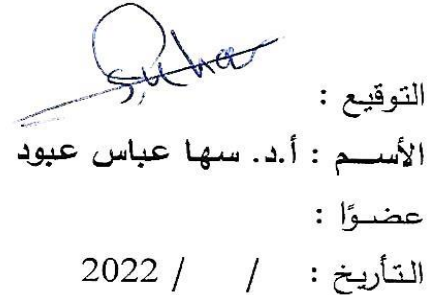 Suha
التوقيع :
الأســم : أ.د. سها عباس عبود
عضـوًا :
التأريخ : / / 2022